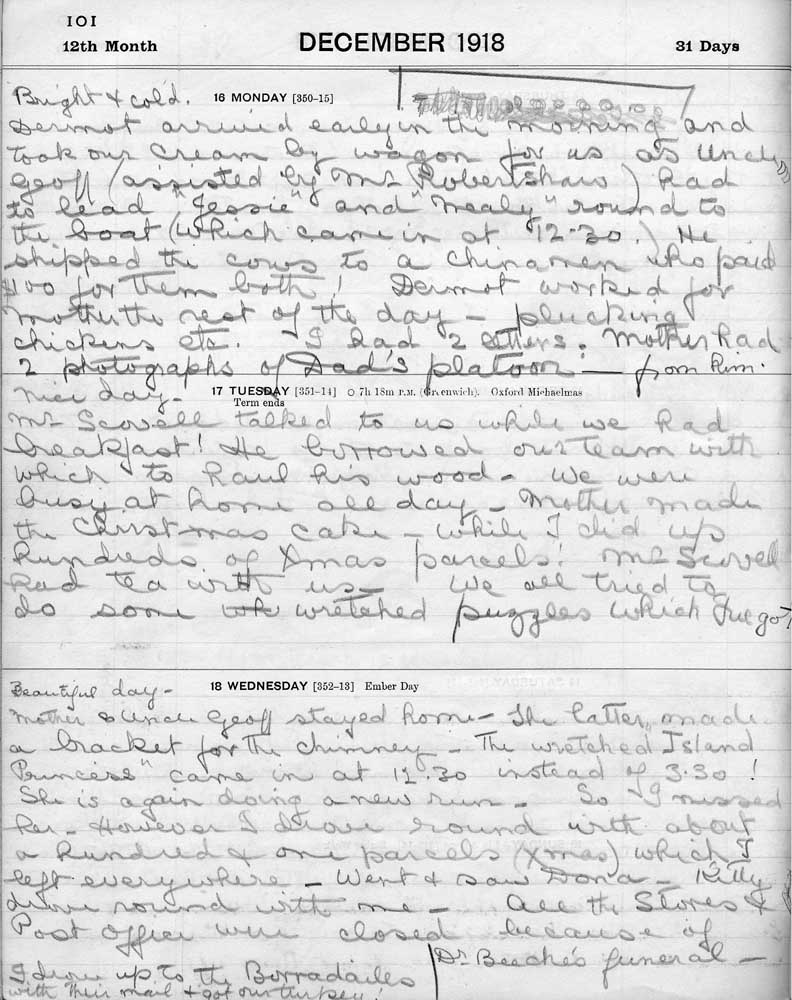 101
12th Month DECEMBER 1918 31 Days
Bright & cold. 16 MONDAY [350-15]
Dermot arrived early in the morning and
took our cream by wagon for us as Uncle
Geoff (assisted by Mr Robertshaw) had
to lead "Jessie" and "Mealy" round to
the boat (which came in at 12-30.) He
shipped the cows to a Chinaman who paid
$100 for them both! Dermot worked for
mother the rest of the day - plucking
chickens etc. - I had 2 letters. Mother had
2 photographs of Dad's platoon! - from him.
Nice day - 17 TUESDAY [351-14] ○ 7h 18m P.M. (Greenwich). Oxford Michaelmas
Term ends
Mr Scovell talked to us while we had
breakfast! He borrowed our team with
which to haul his wood - We were
busy at home all day - Mother made
the Christmas cake - while I did up
hundreds of Xmas parcels! Mr Scovell
had tea with us - We all tried to
do some wretched puzzles which I've got!
Beautiful day - 18 WEDNESDAY [352-13] Ember Day
Mother & Uncle Geoff stayed home - The latter made
a bracket for the chimney - The wretched "Island
Princess" came in at 12.30 instead of 3.30!
She is again doing a new run - So I missed
her - However I drove round with about
a hundred & one parcels (Xmas) which I
left everywhere - Went & saw Dona - Kitty
drove round with me - All the Stores &
Post Office were closed because of
Dr Beeche's funeral -
I drove up to the Borradailes
with their mail & got our turkey!